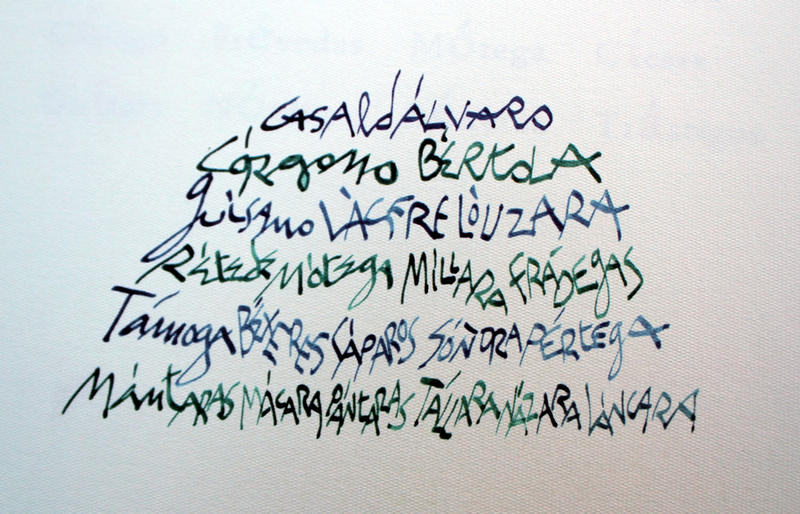 CASALdÁLVARO
CÓRgomo BÉRtoLA
guísamo LÁCERE LOUZARA
Rétede Mótega MILLARA FRÁDEgAS
Támoga BÉXERES CÁPAROS SÓÑORA PÉRtEgA
MántARAS MÁCARA PÁNtARAS TÁLLARA NÍZARA LÁNCARA